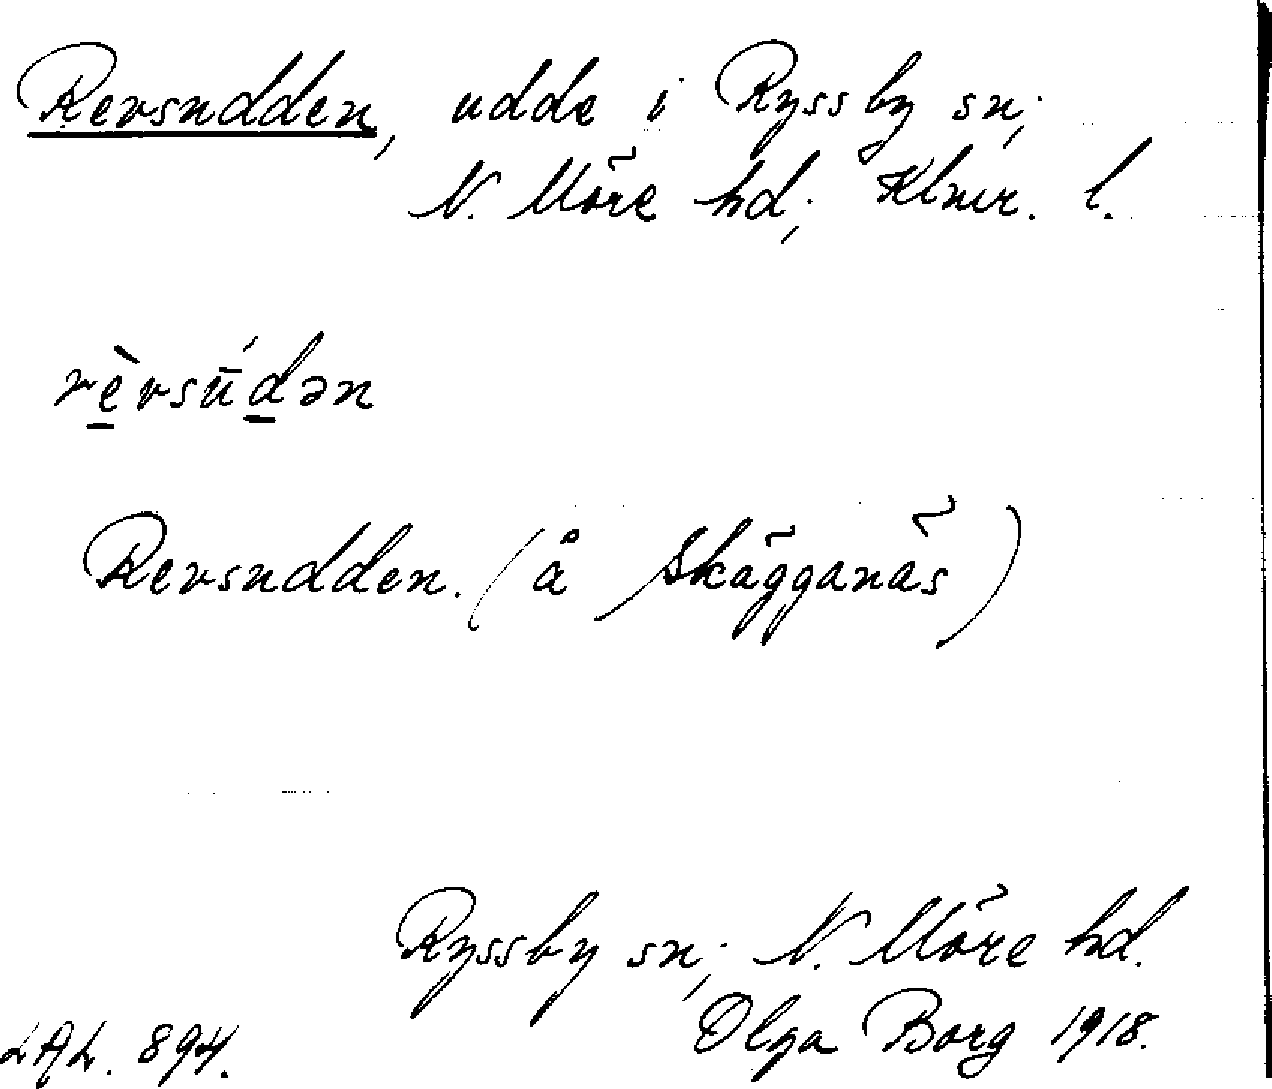 Revsudden, udde i Ryssby sn;
N. Möre hd; Klmr. l.
rè̱vsū́ḏən
Revsudden. (å Skäggenäs)
Ryssby sn; N. Möre hd.
Olga Borg 1918.
LAL. 894.